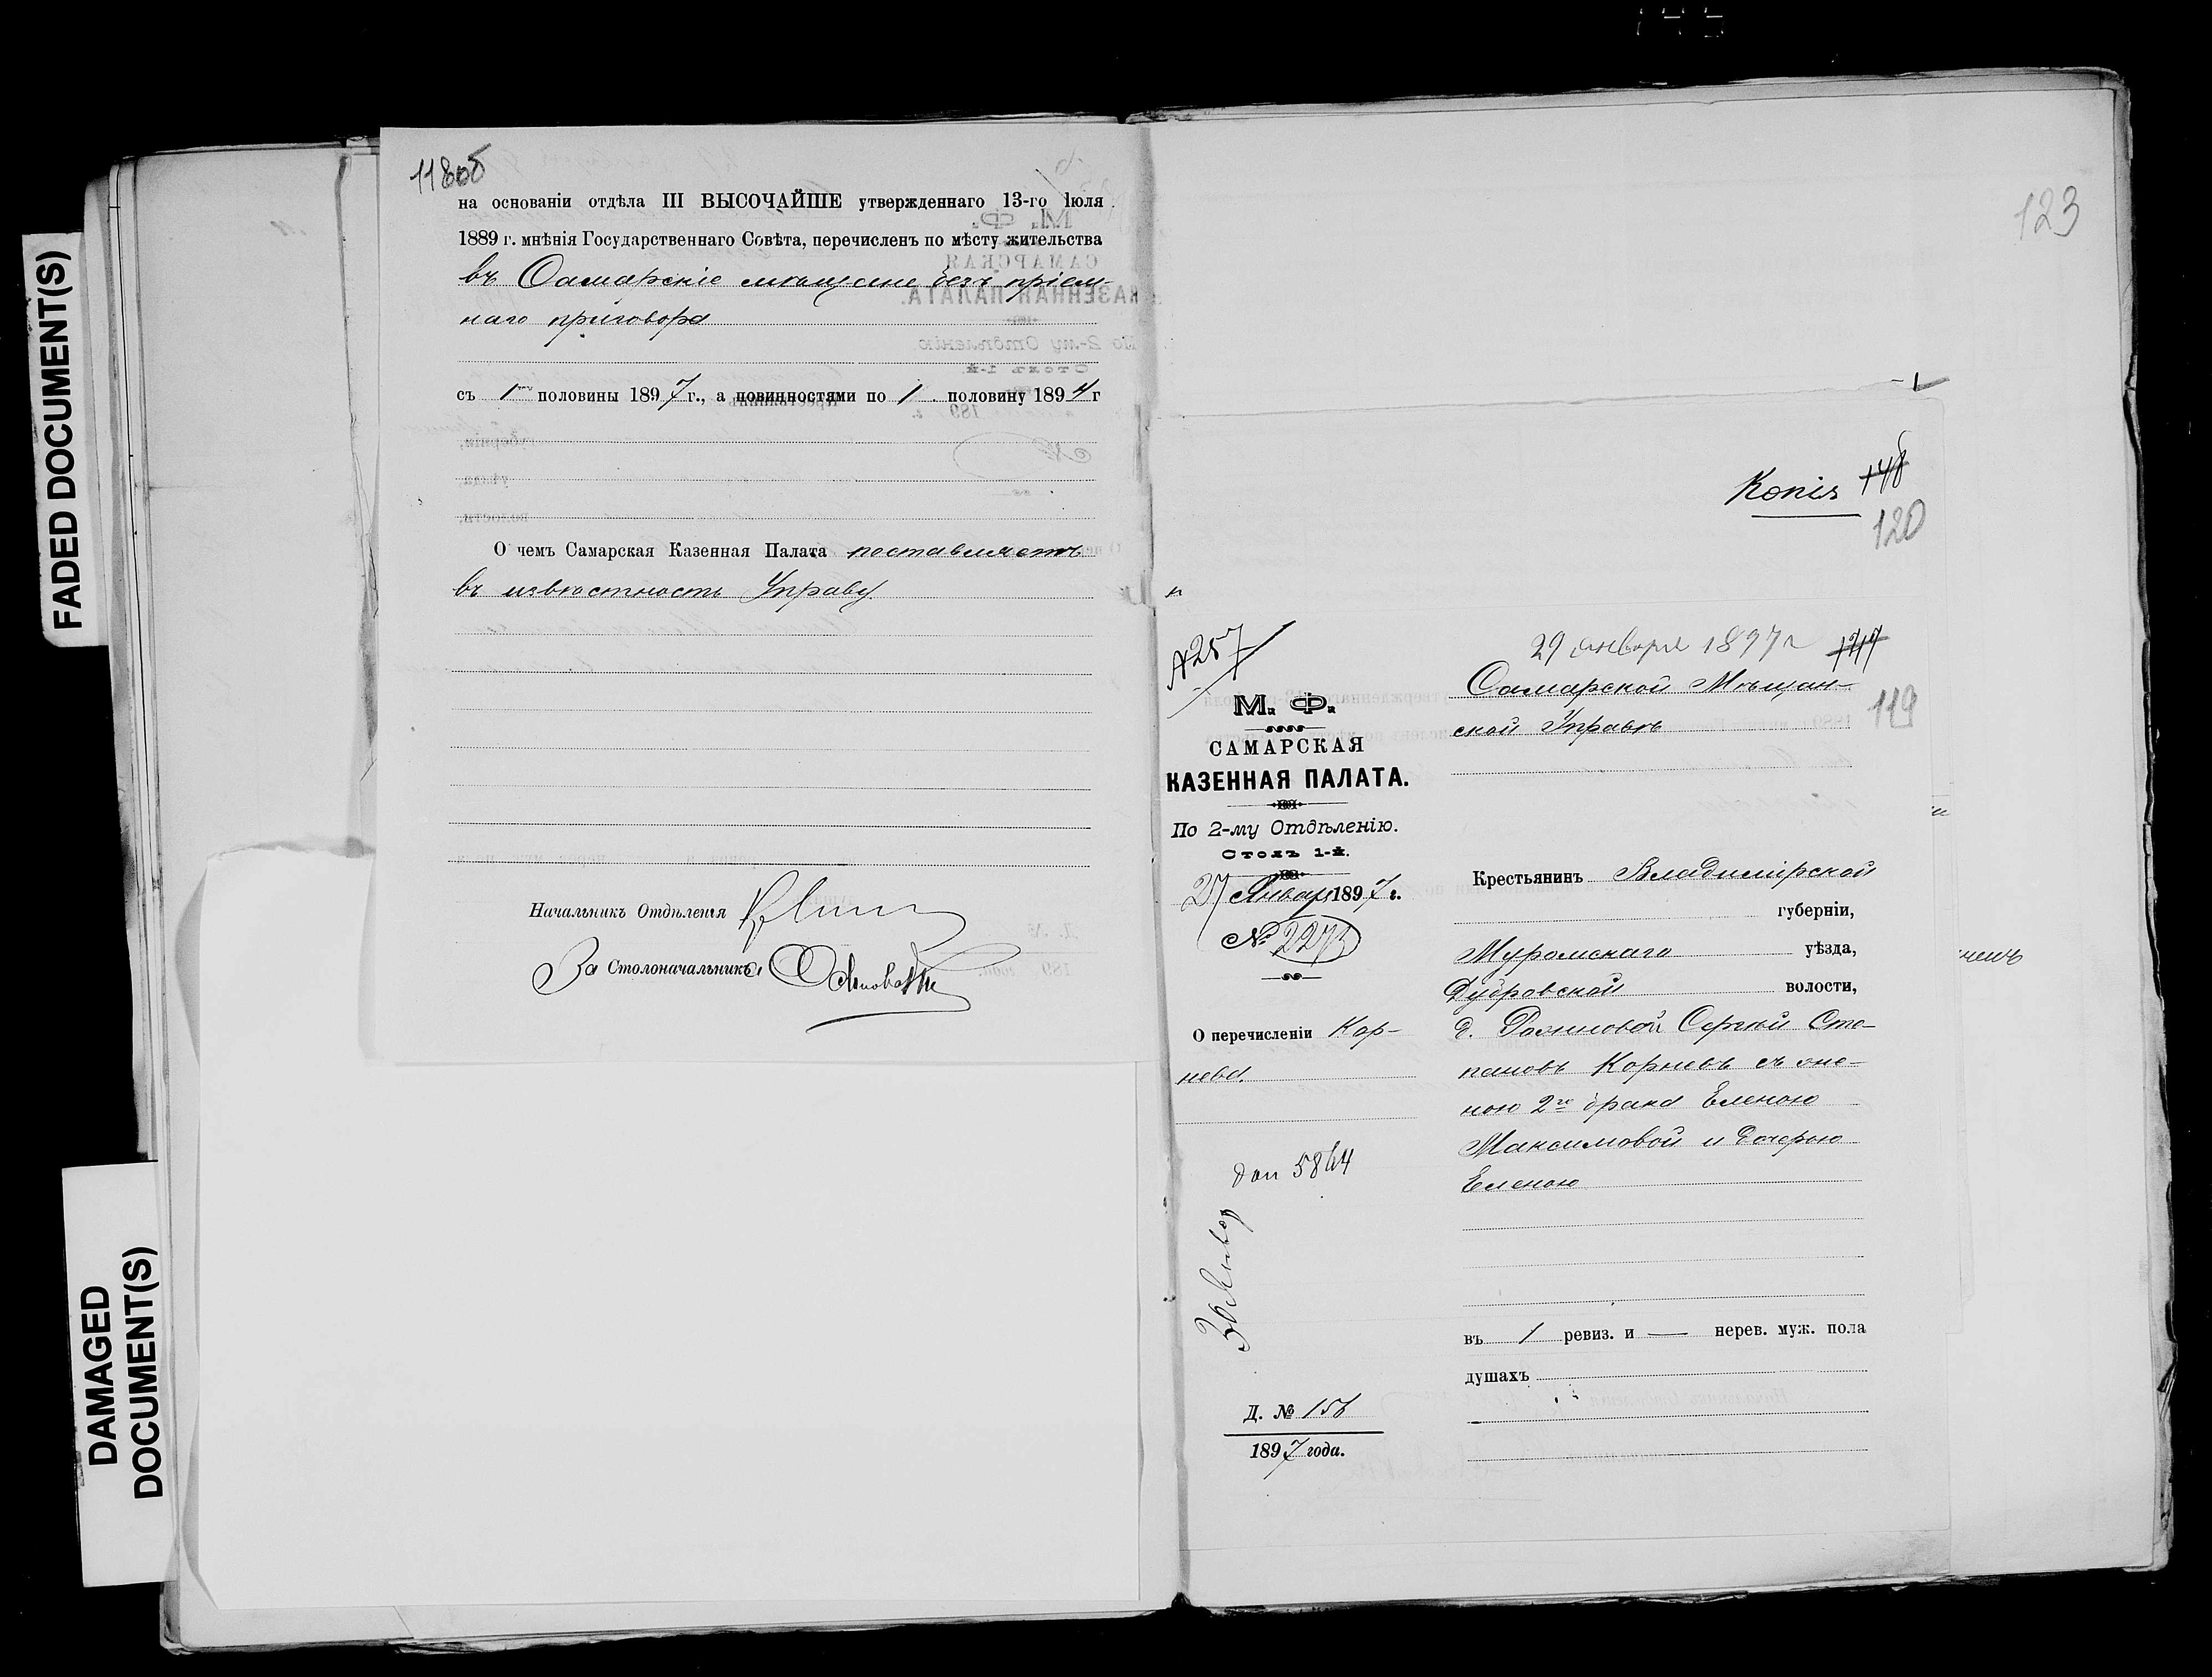 FADED DOCUMENT(S)
DAMAGED
DOCUMENT(S)
118об
на основаніи отдѣла III ВЫСОЧАЙШЕ утвержденнаго 13-го Іюля
1889 г. мнѣнія Государственнаго Совѣта, перечисленъ по мѣсту жительства
въ Самарскіе мѣщане безъ пріем-
наго приговора
съ 1 половины 1897 г., а повинностями по 1 половину 1894 г
О чемъ Самарская Казенная Палата поставляетъ
въ извѣстность Управу.
Начальникъ Отдѣленія
За Столоначальника
123
Копія
120
№257
29 января 1897 г
119
М. Ф.
САМАРСКАЯ
КАЗЕННАЯ ПАЛАТА.
По 2-му Отдѣленію.
Столъ 1-й.
27 Январ 1897 г.
№ 2273
О перечисленіи Кор-
нева.
5864
Д. № 156
1897 года.
Самарской Мѣщан-
ской Управѣ
Крестьянинъ Владимірской
губерніи,
Муромскаго уѣзда,
Дубровской волости,
д. Сергѣй Сте-
пановъ Корневъ съ же-
ною 2го брака Еленою
Максимовой и дочерью
Еленою
въ 1 ревиз. и — нерев. муж. пола
душахъ